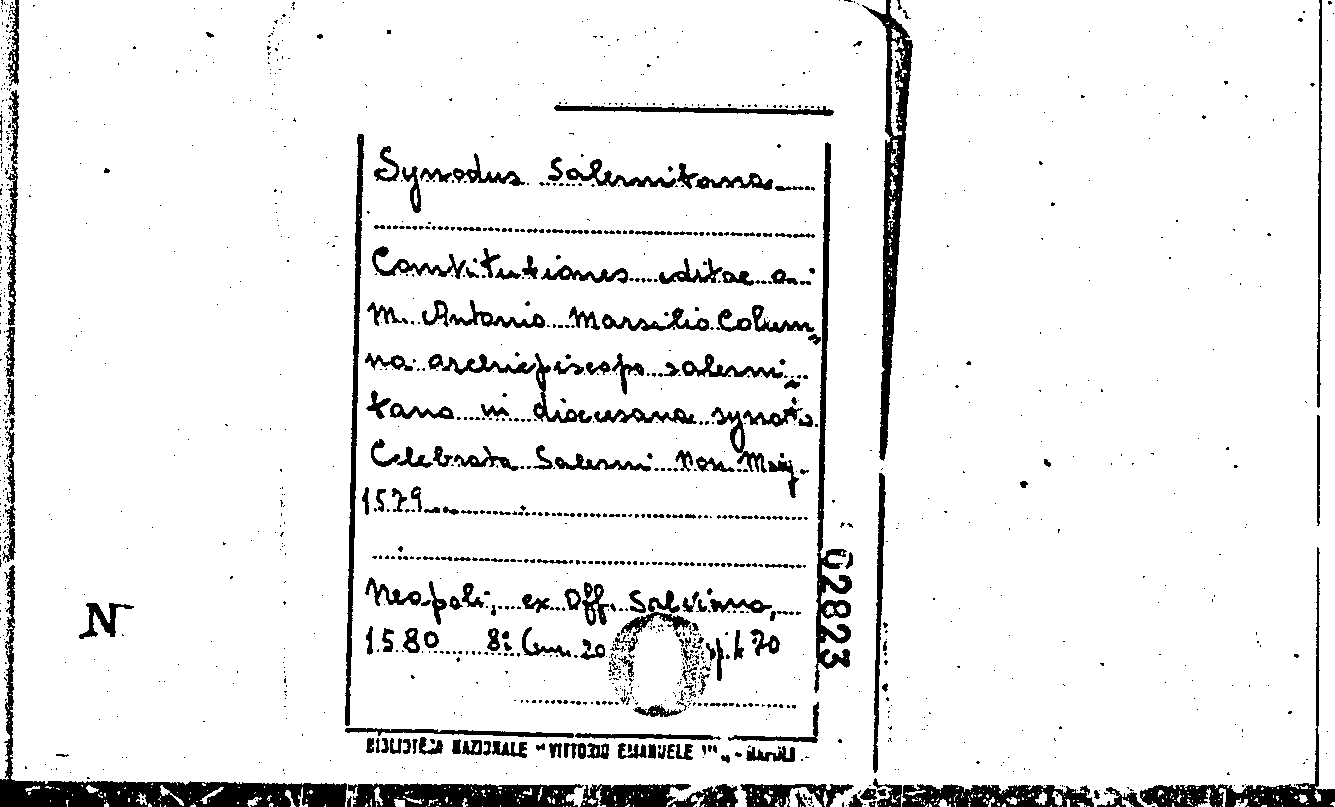 Synodus Salernitana
Constitutiones editae a
M. Antonio Marsilio Colum„
na archiepiscopo salerni„
tano in diocesana synodo
Celebrata Salerni Non. Maij.
1579
Neapoli, ex Off. Salviana,
1580 8° (cm. 20
70
BIBLIOTECA NAZIONALE "VITTORIO EMANUELE III" - NAPOLI
02823
N